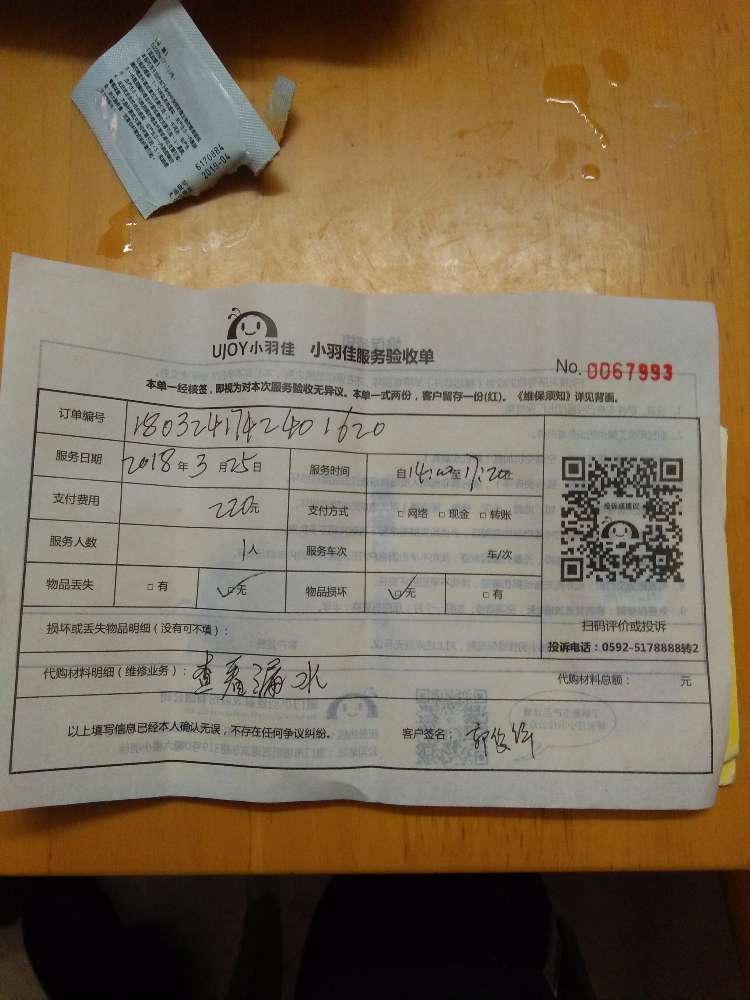 6170884
2019-04
UJOY小羽佳 小羽佳服务验收单
No. 0067993
本单一经核签，即视为对本次服务验收无异议。本单一式两份，客户留存一份(红)。《维保须知》详见背面。
订单编号 1803241742401620
服务日期 2018年3月25日 服务时间 自14:00至17:20
支付费用 220元 支付方式 □网络 □现金 □转账
服务人数 1人 服务车次 车/次
物品丢失 □有 □无 物品损坏 □无 □有
投诉或建议
扫码评价或投诉
投诉电话：0592-5178888转2
损坏或丢失物品明细（没有可不填）：
代购材料明细（维修业务）： 查看漏水 代购材料总额： 元
以上填写信息已经本人确认无误，不存在任何争议纠纷。 客户签名：